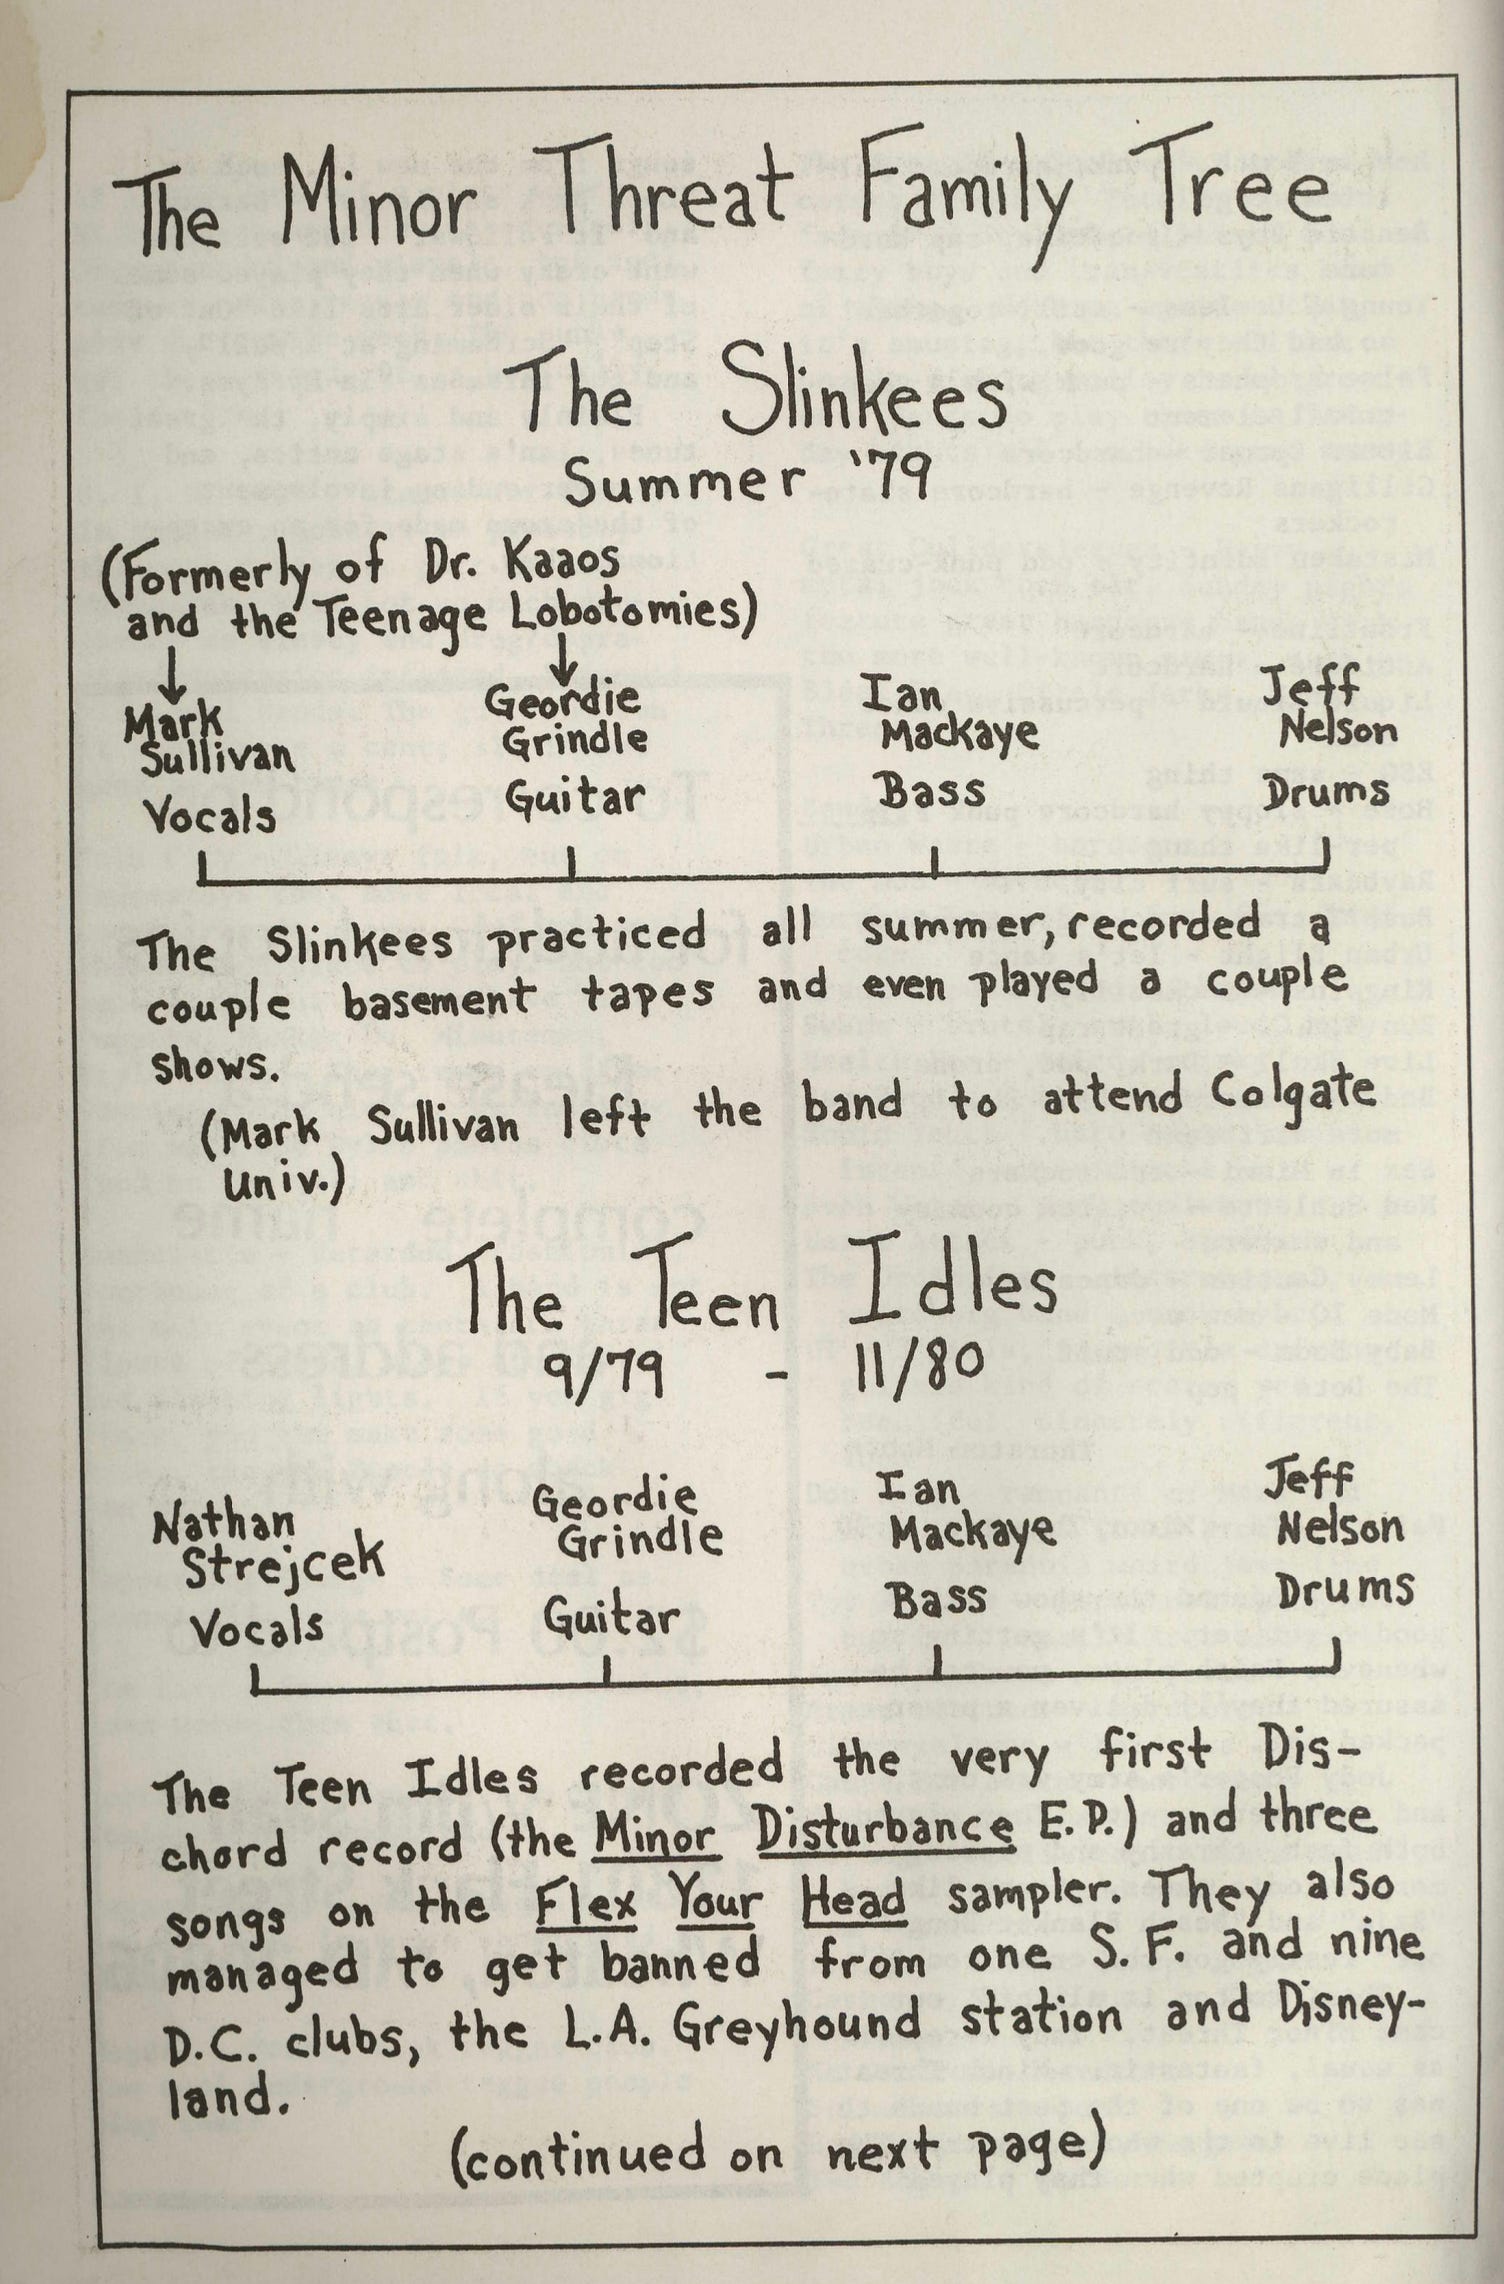 The Minor Threat Family Tree
The Slinkees
Summer '79
(Formerly of Dr. Kaaos
and the Teenage Lobotomies)
Mark
Sullivan
Vocals
Geordie
Grindle
Guitar
Ian
Mackaye
Bass
Jeff
Nelson
Drums
The Slinkees practiced all summer, recorded a
couple basement tapes and even played a couple
shows.
(Mark Sullivan left the band to attend Colgate
Univ.)
The Teen Idles
9/79 - 11/80
Nathan
Strejcek
Vocals
Geordie
Grindle
Guitar
Ian
Mackaye
Bass
Jeff
Nelson
Drums
The Teen Idles recorded the very first Dis-
chord record (the Minor Disturbance E.P.) and three
songs on the Flex Your Head sampler. They also
managed to get banned from one S.F. and nine
D.C. clubs, the L.A. Greyhound station and Disney-
land.
(continued on next page)